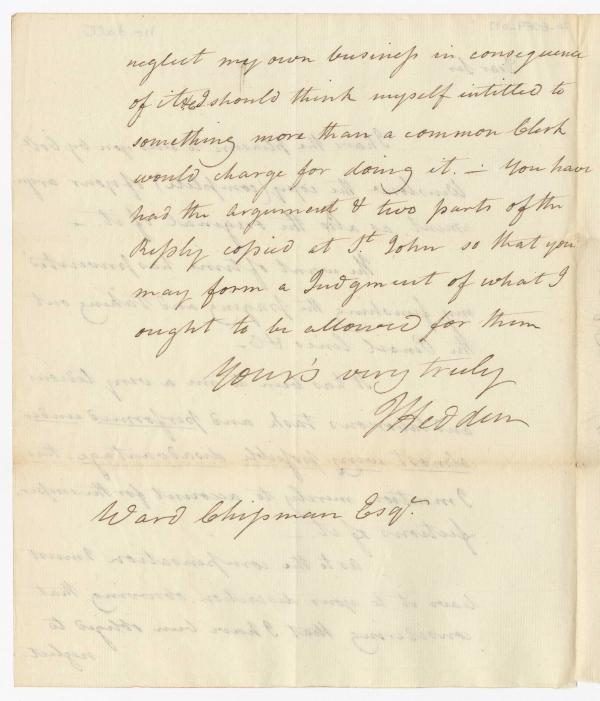 neglect my own business in consequence
of it &c I should think myself intitled to
something more than a common Clerk
would charge for doing it. — You have
had the argument & two parts of the
Reply copied at St. John so that you
may form a Judgment of what I
ought to be allowed for them
Your's very truly
J Hedden
Ward Chipman Esqr.